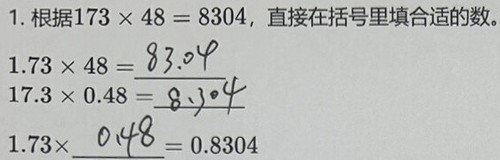 1. 根据173 × 48 = 8304，直接在括号里填合适的数。
1.73 × 48 = 83.04
17.3 × 0.48 = 8.304
1.73× 0.48 = 0.8304